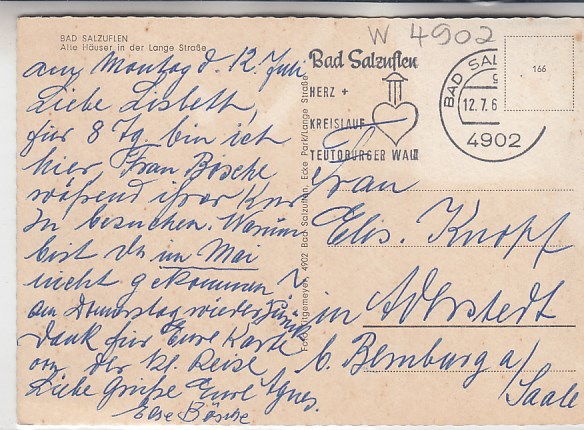 BAD SALZUFLEN
Alte Häuser in der Lange Straße
am Montag d. 12. Juli
Liebe Lisbeth,
für 8 Tg. bin ich
hier, Frau Bösche
während ihrer Kur
zu besuchen. Warum
bist du im Mai
nicht gekommen?
am Donnerstag wieder zurück
Dank für Eure Karte
von der kl. Reise
Liebe Grüße Eure Agnes.
Else Bösche
4902 Bad Salzuflen, Ecke Park/Lange Straße
W 4902
Bad Salzuflen
HERZ +
KREISLAUF
TEUTOBURGER WALD
BAD SAL
12.7.6
4902
166
Frau
Elis. Knopf
in Aderstedt
b. Bernburg a/
Saale